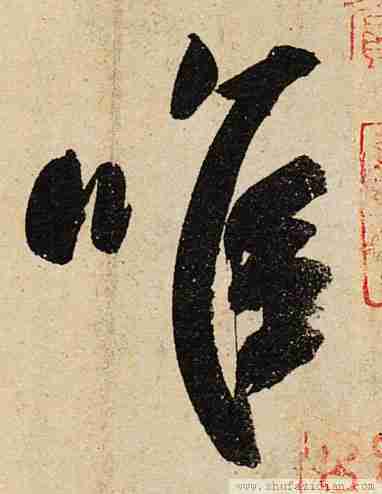 唯
www.shufazidian.com